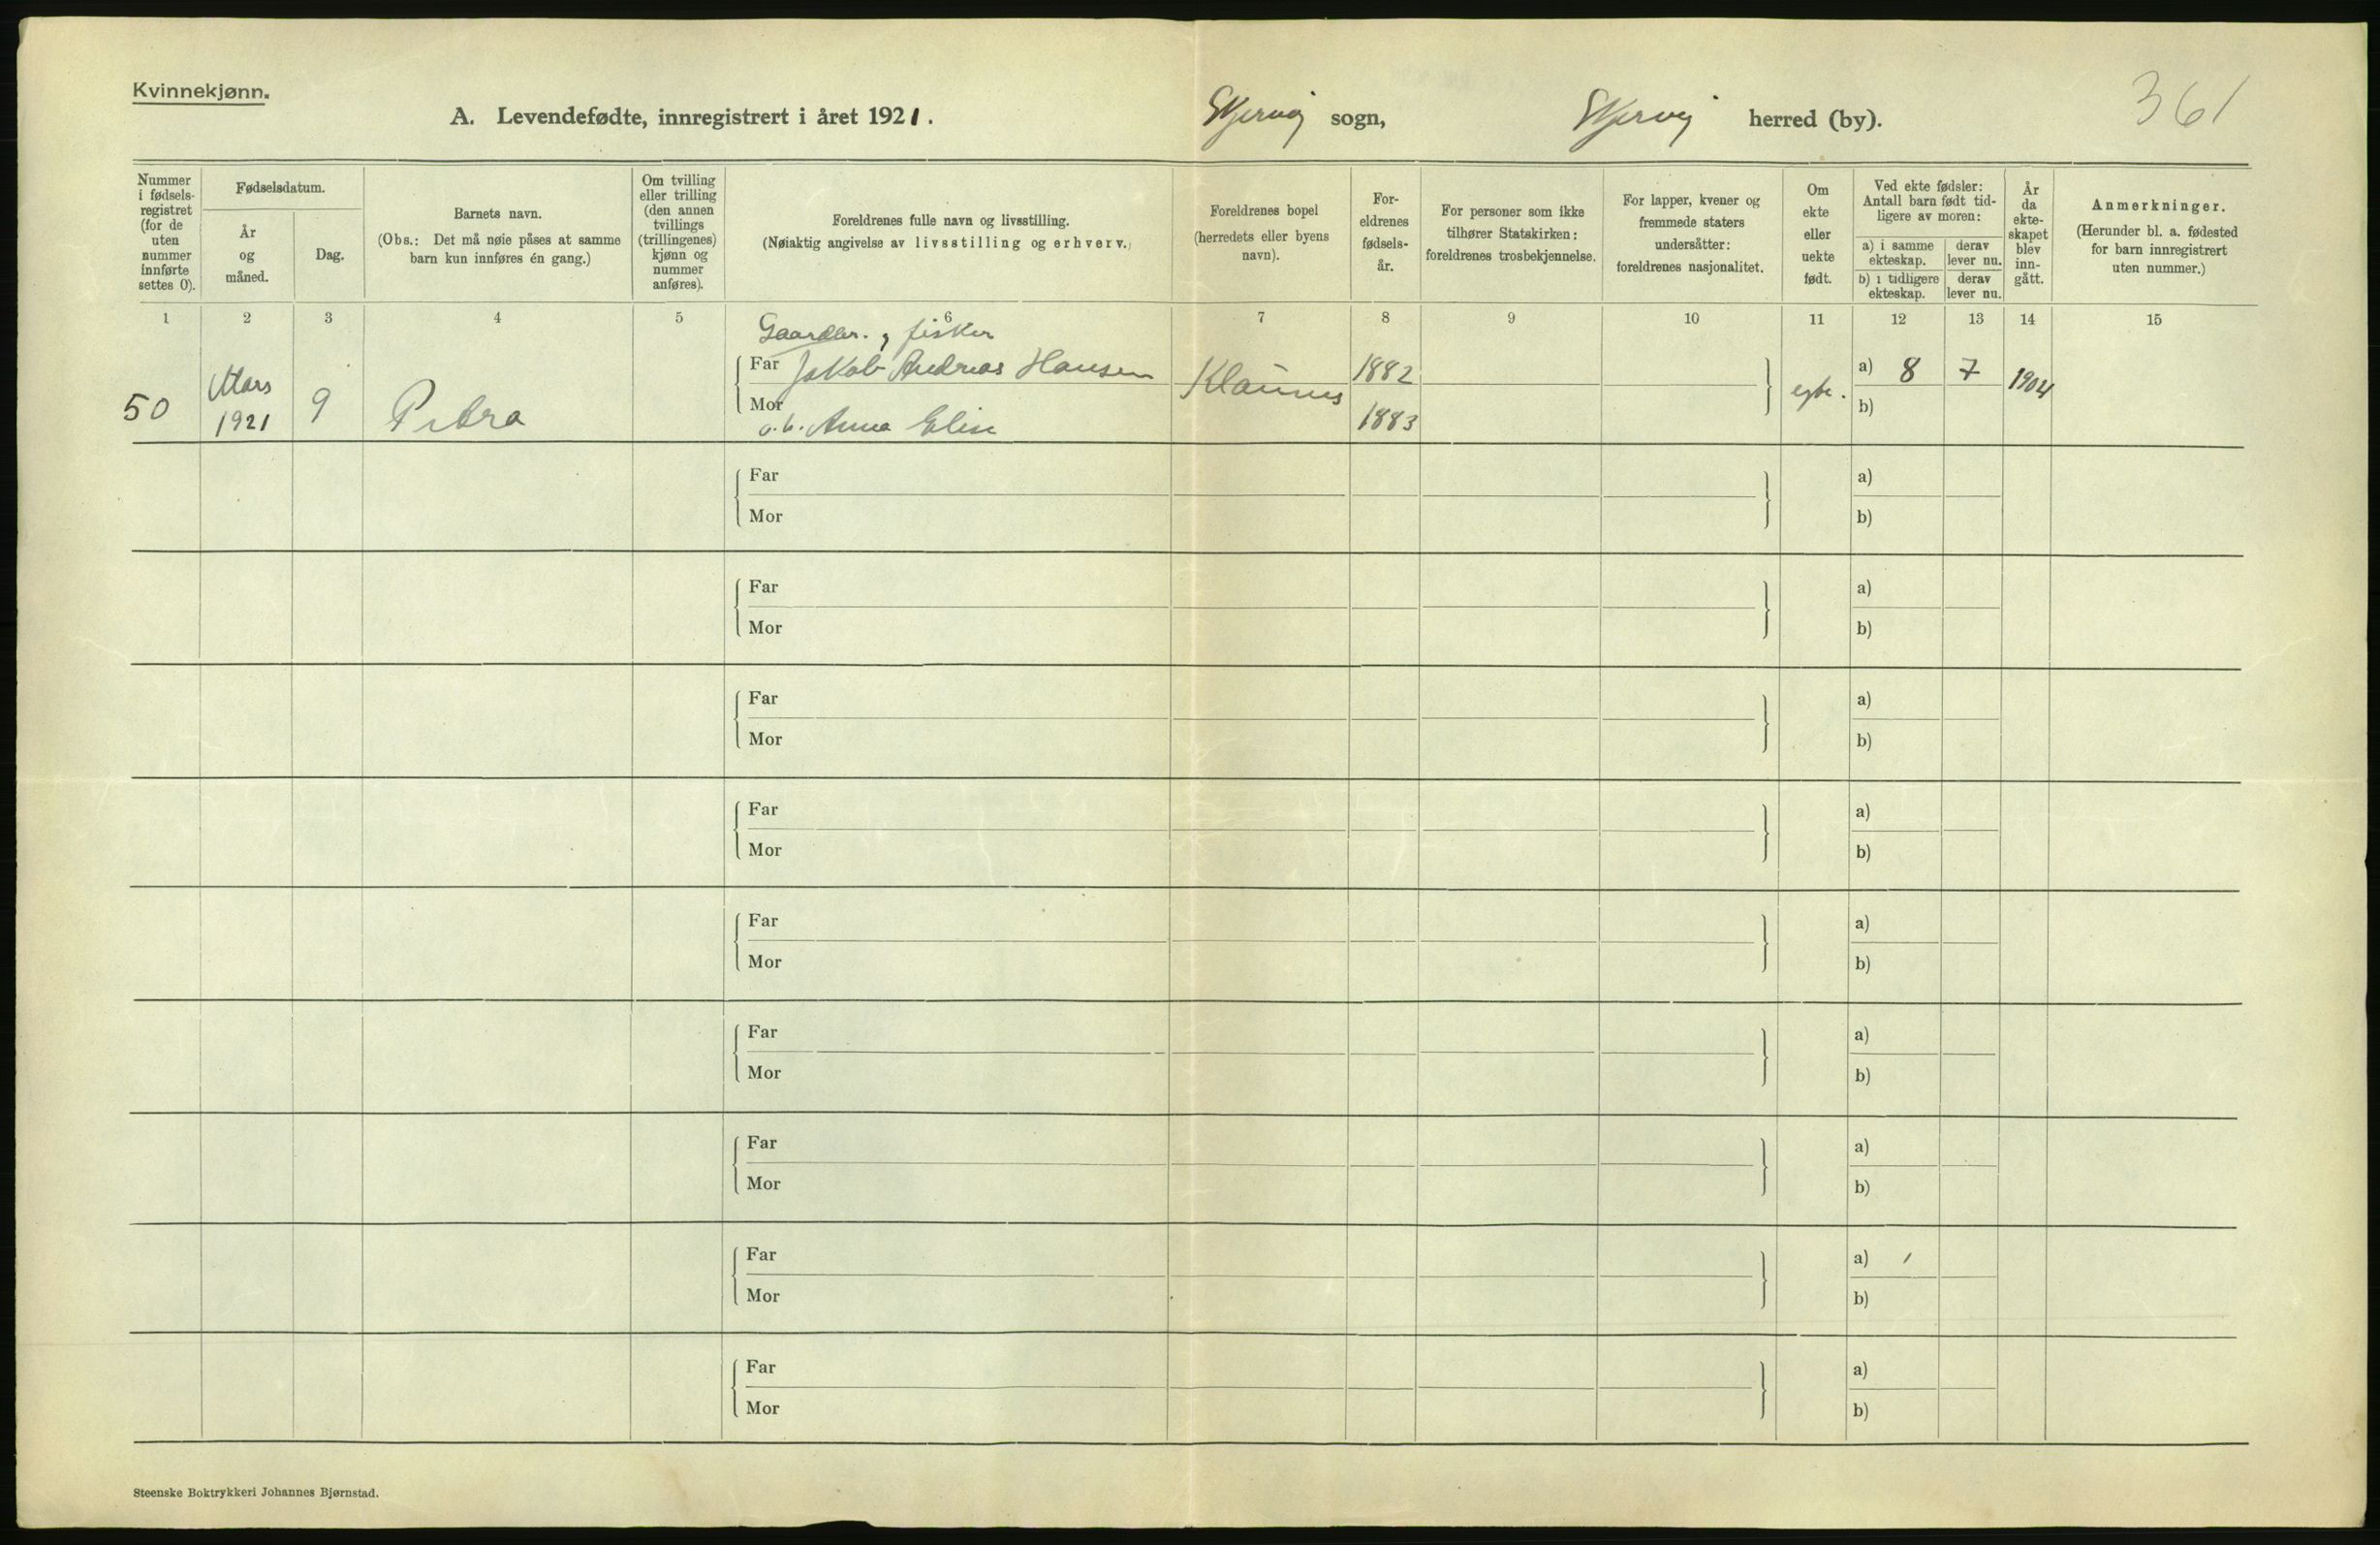 Kvinnekjønn.
A. Levendefødte, innregistrert i året 1921. Skjervøy sogn, Skjervøy herred (by). 361
Nummer i fødselsregistret (for de uten nummer innførte settes 0).
Fødselsdatum.
År og måned.
Dag.
Barnets navn.
(Obs.: Det må nøie påses at samme barn kun innføres én gang.)
Om tvilling eller trilling (den annen tvillings (trillingenes) kjønn og nummer anføres).
Foreldrenes fulle navn og livsstilling.
(Nøiaktig angivelse av livsstilling og erhverv.)
Foreldrenes bopel (herredets eller byens navn).
Foreldrenes fødselsår.
For personer som ikke tilhører Statskirken: foreldrenes trosbekjennelse.
For lapper, kvener og fremmede staters undersåtter: foreldrenes nasjonalitet.
Om ekte eller uekte født.
Ved ekte fødsler: Antall barn født tidligere av moren:
a) i samme ekteskap.
derav lever nu.
b) i tidligere ekteskap.
derav lever nu.
År da ekteskapet blev inngått.
Anmerkninger.
(Herunder bl. a. fødested for barn innregistrert uten nummer.)
1 2 3 4 5 6 7 8 9 10 11 12 13 14 15
Gaardbr., fisker
50 Mars 1921 9 Petra
Far Jakob Andreas Hansen 1882 a) 8 7 1904
Mor o. h. Anna Elise 1883 b)
Far a)
Mor b)
Far a)
Mor b)
Far a)
Mor b)
Far a)
Mor b)
Far a)
Mor b)
Far a)
Mor b)
Far a)
Mor b)
Far a)
Mor b)
Far a)
Mor b)
Steenske Boktrykkeri Johannes Bjørnstad.